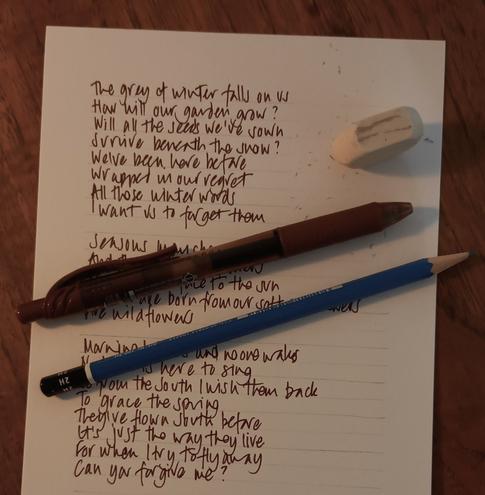 The grey of winter falls on us
How will our garden grow?
Will all the seeds we've sown
Survive beneath the snow?
We've been here before
Wrapped in our regret
All those winter words
I want us to forget them
Seasons
to the sun
born from our
wildflowers
Morning and no one wakes
is here to sing
from the South I wish them back
To grace the spring
They've flown South before
It's just the way they live
For when I try to fly away
Can you forgive me?
2H